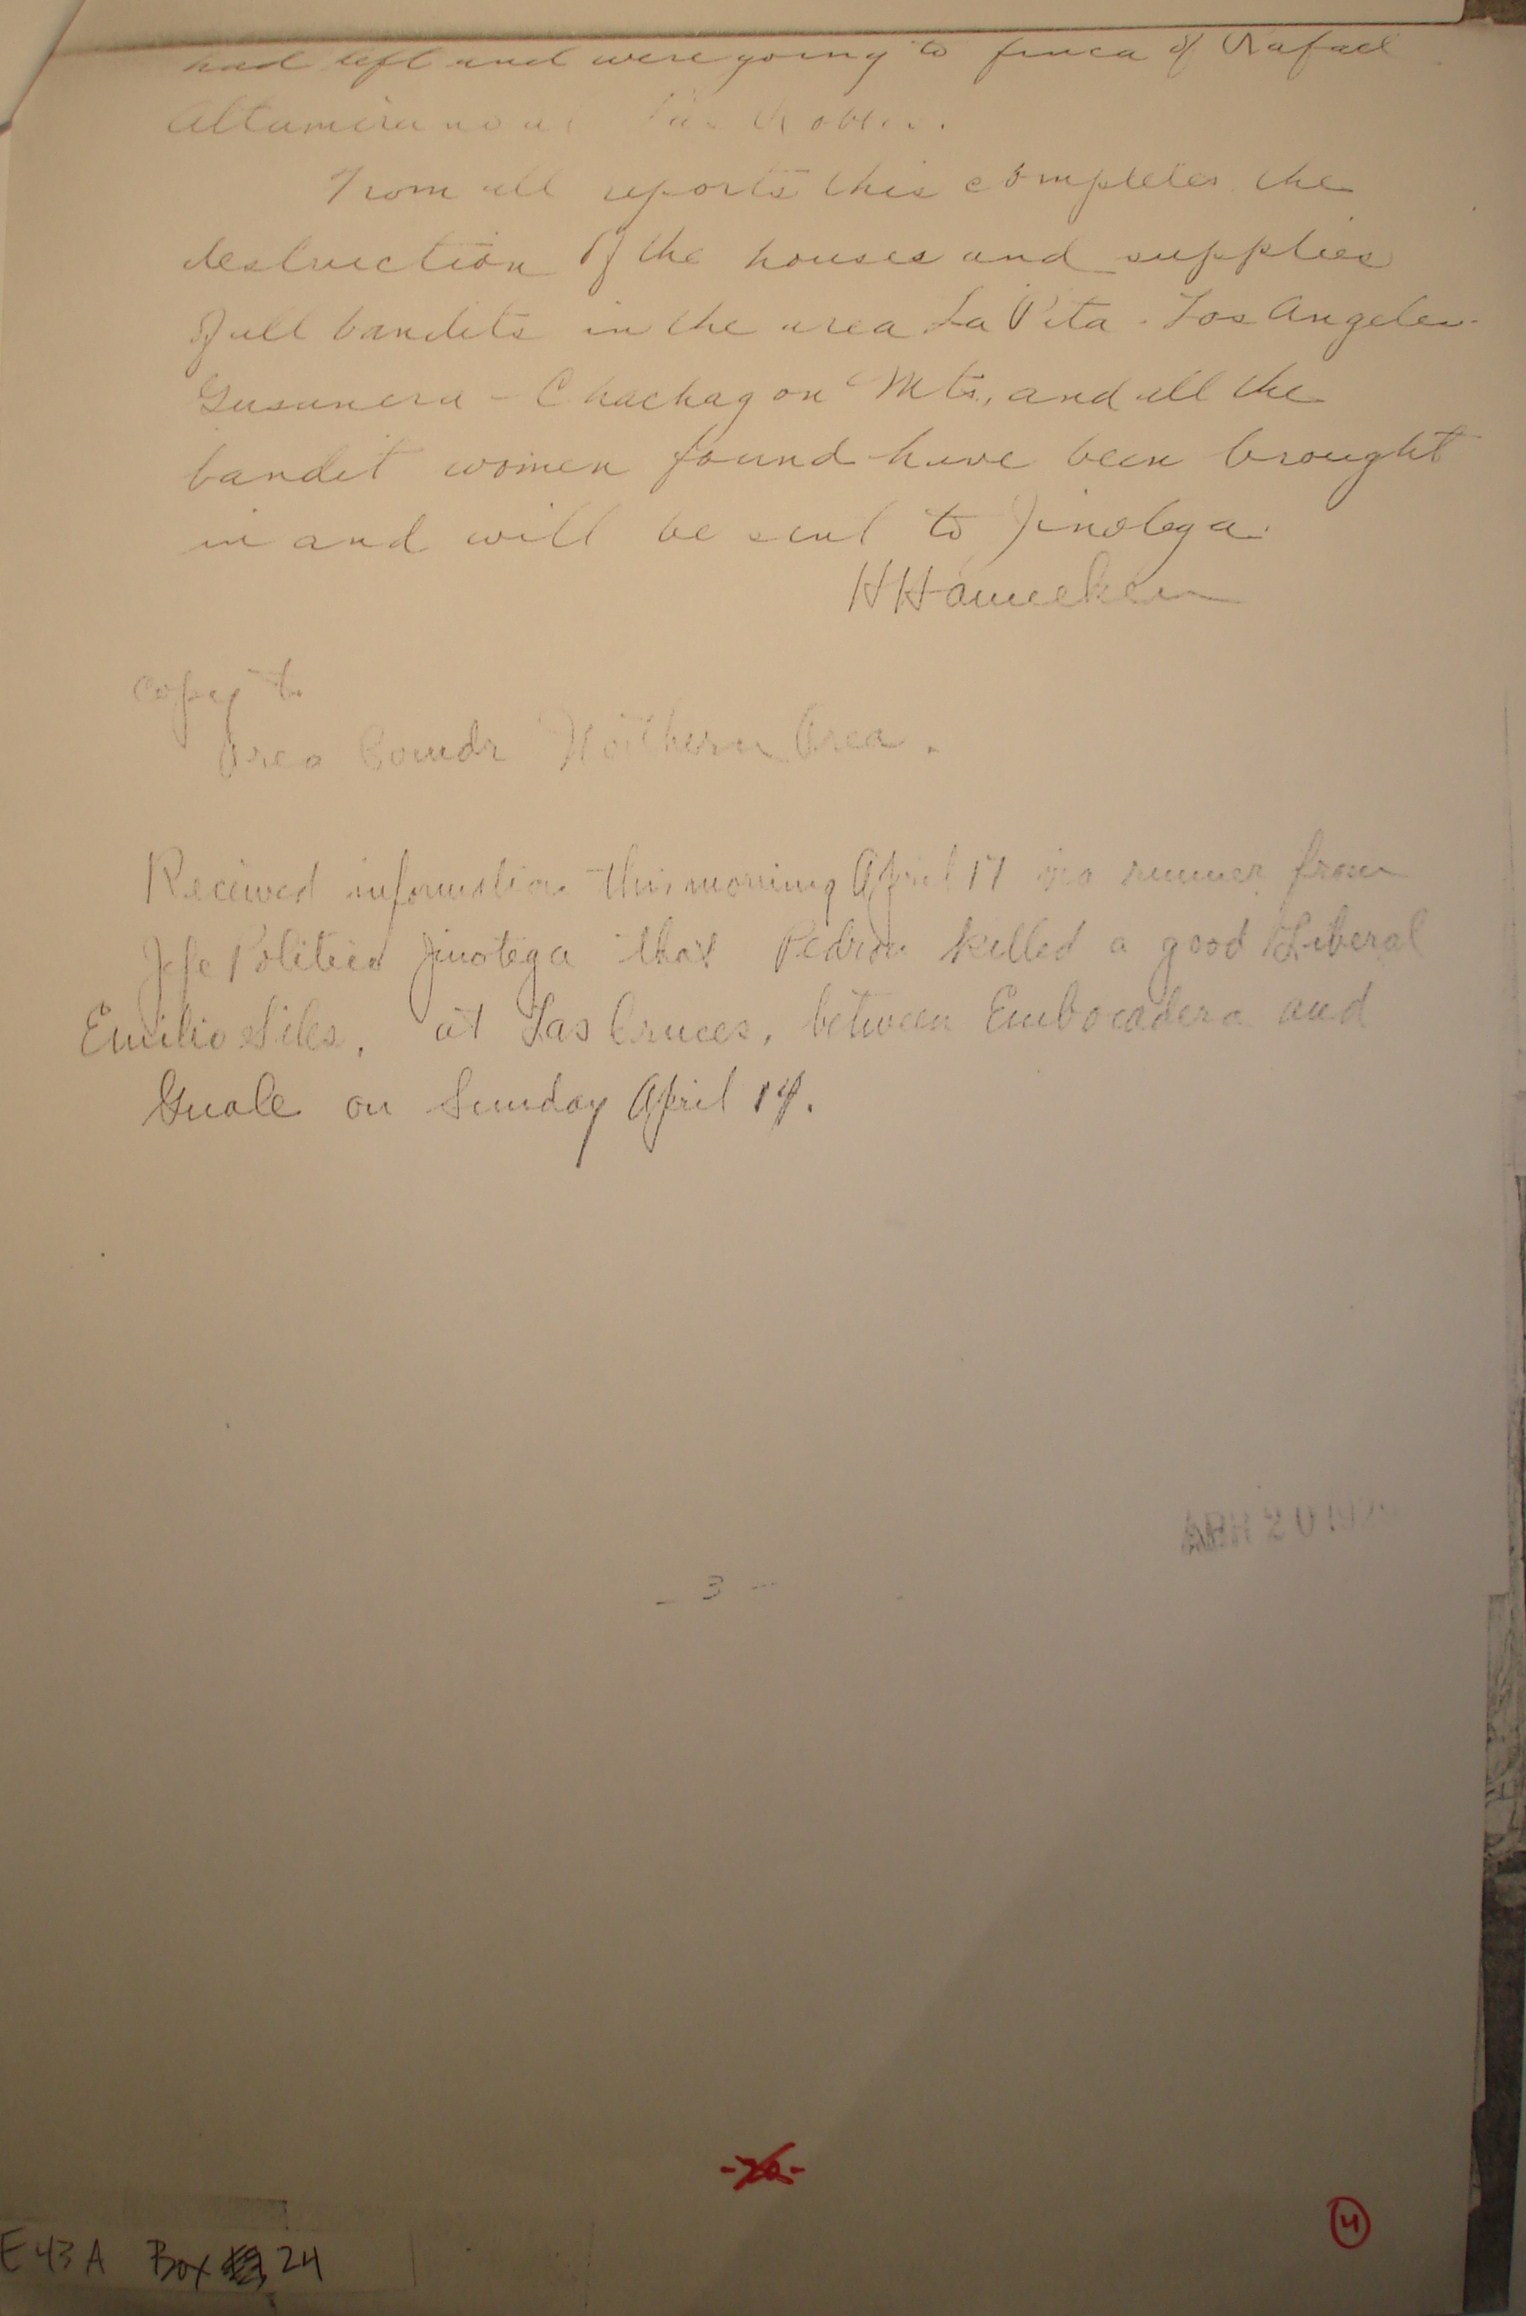 had left and were going to finca of Rafael
Altamirano at Las Robles.
From all reports this completes the
destruction of the houses and supplies
of all bandits in the area La Pita - Los Angeles -
Gusanera - Chachagon Mts, and all the
bandit women found have been brought
in and will be sent to Jinotega.
H Hanneken
Copy to
Area Comdr Northern Area.
Received information this morning April 17 via runner from
Jefe Politico Jinotega that Pedron killed a good Liberal
Emilio Siles, at Las Cruces, between Embocadera and
Guale on Sunday April 14.
- 3 -
E43A Box 24
4